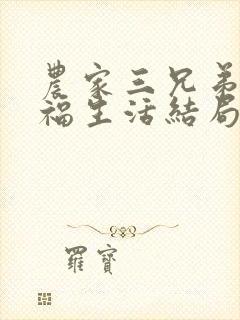 農家三兄弟
福生活結局
羅寶